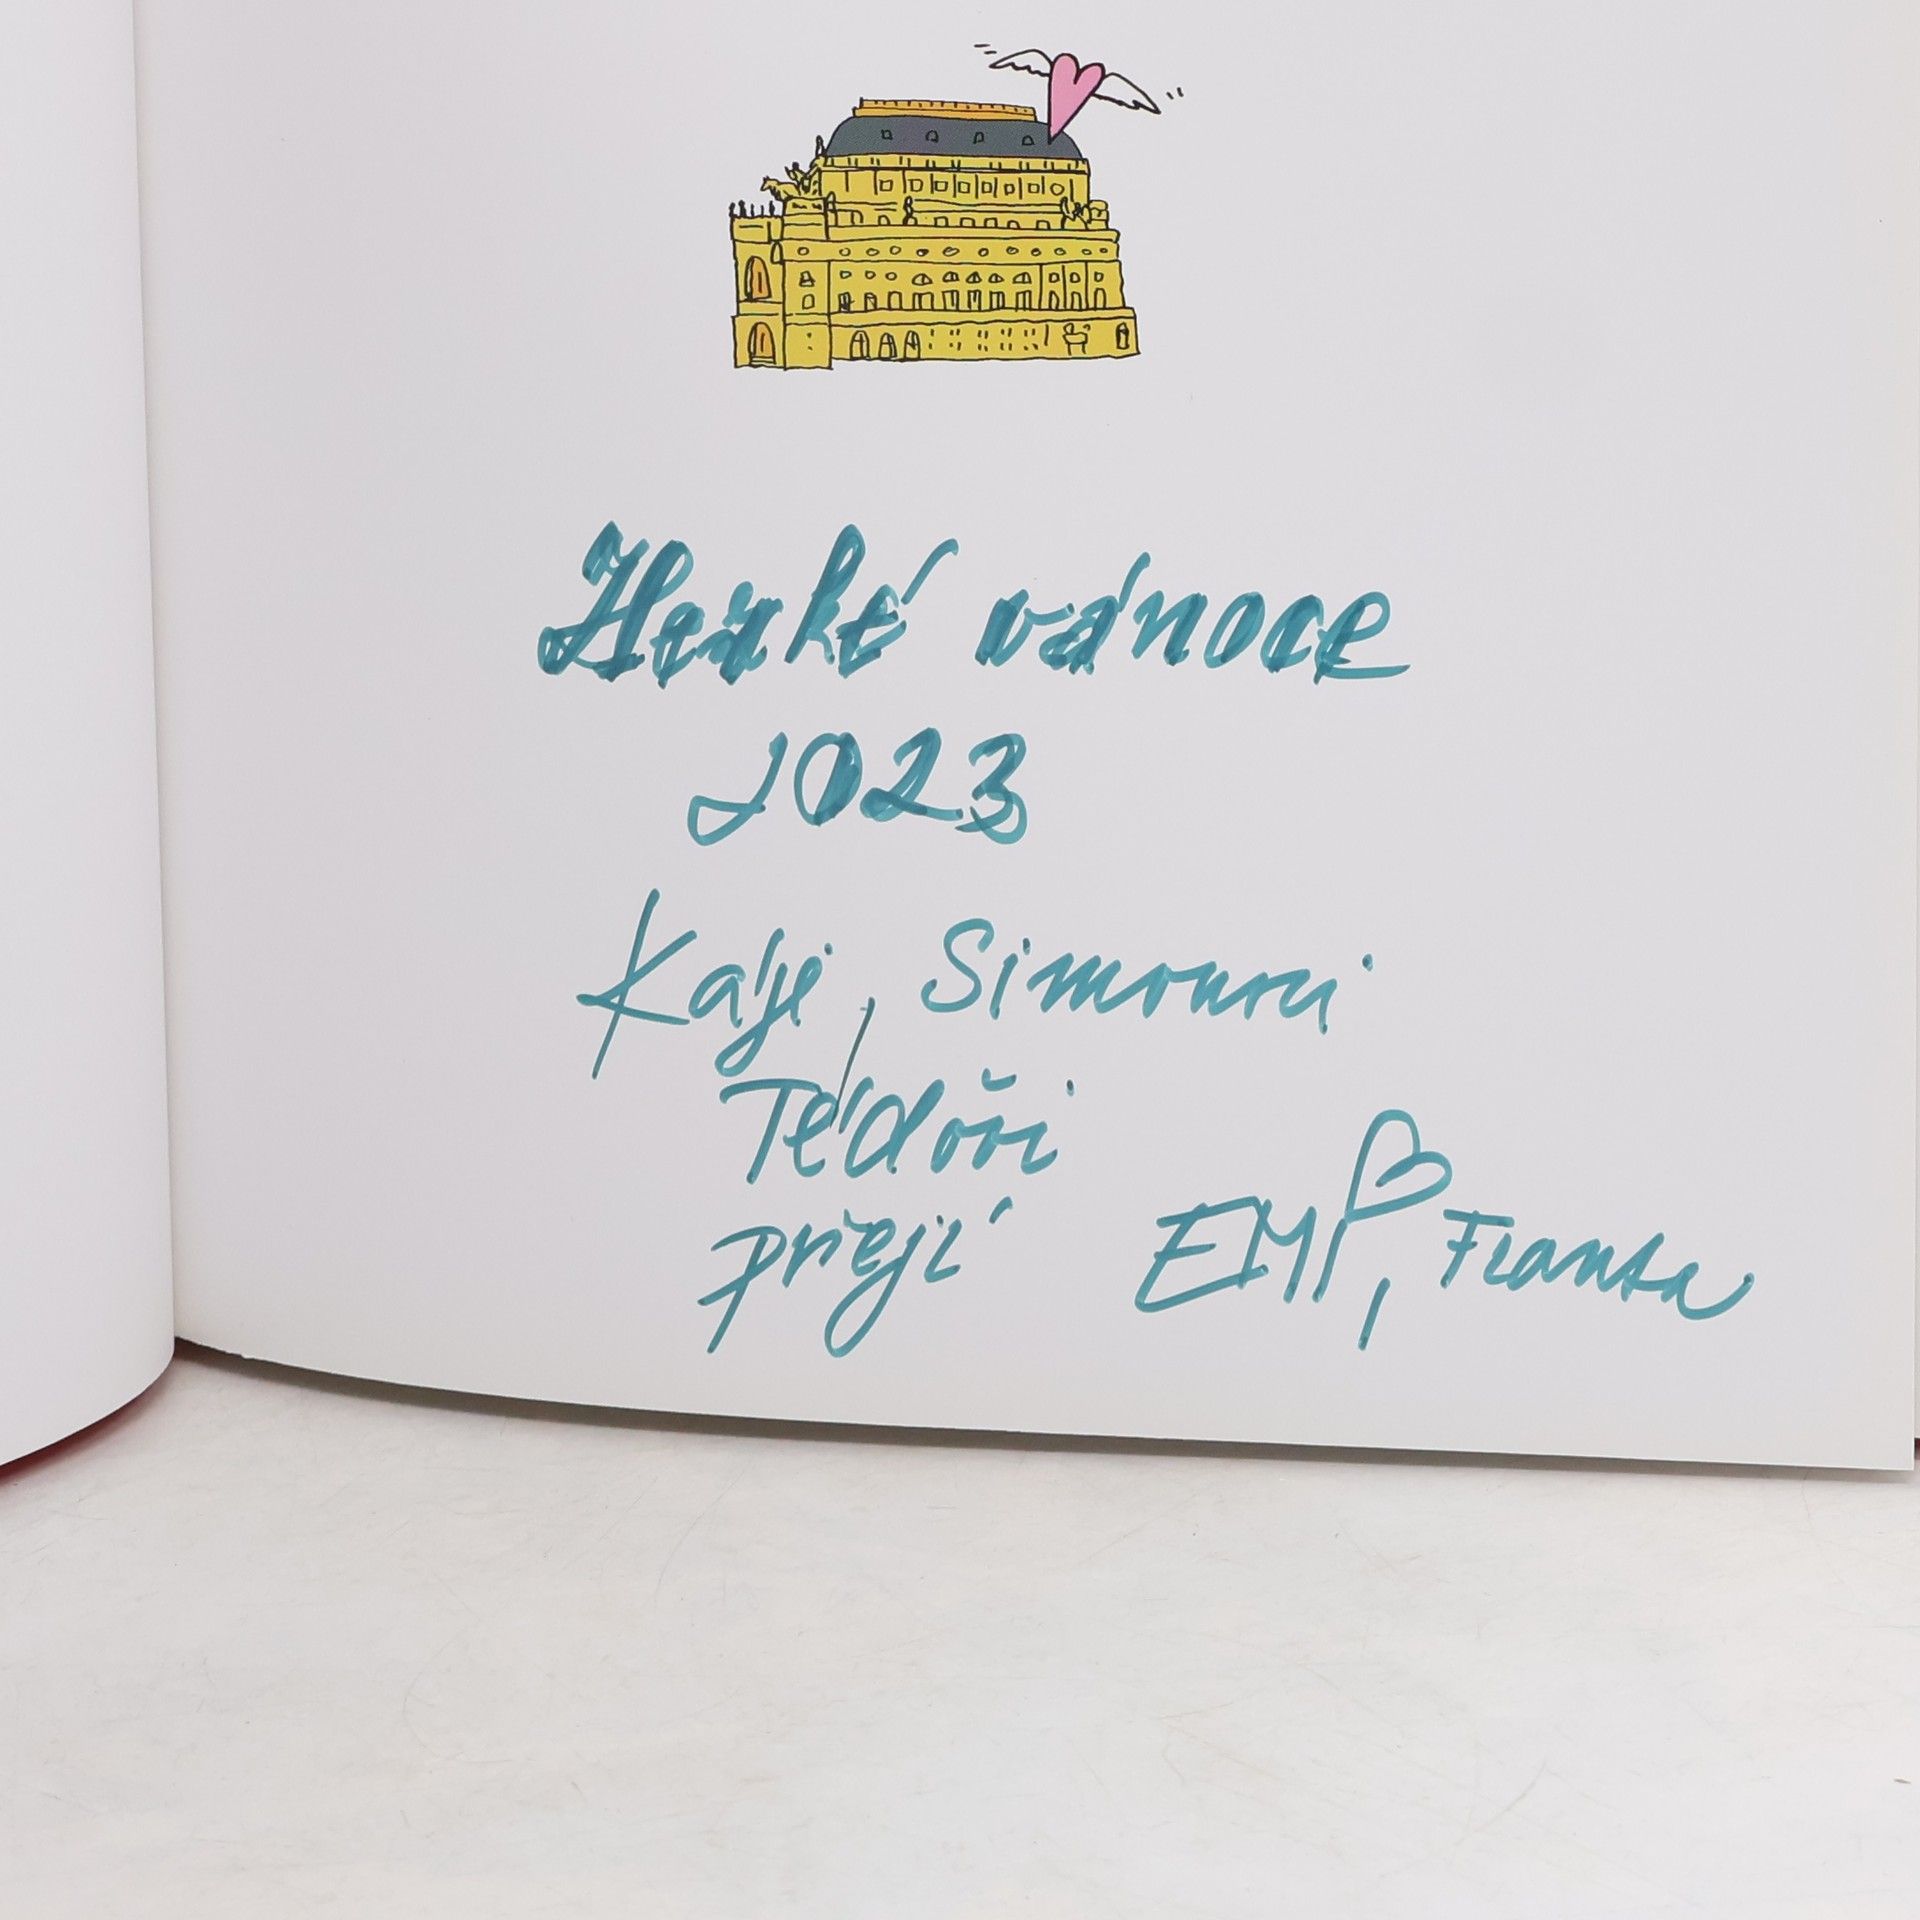 Hezké vánoce
2023
Káji, Simonovi
Tédovi
přejí EMI, Franta